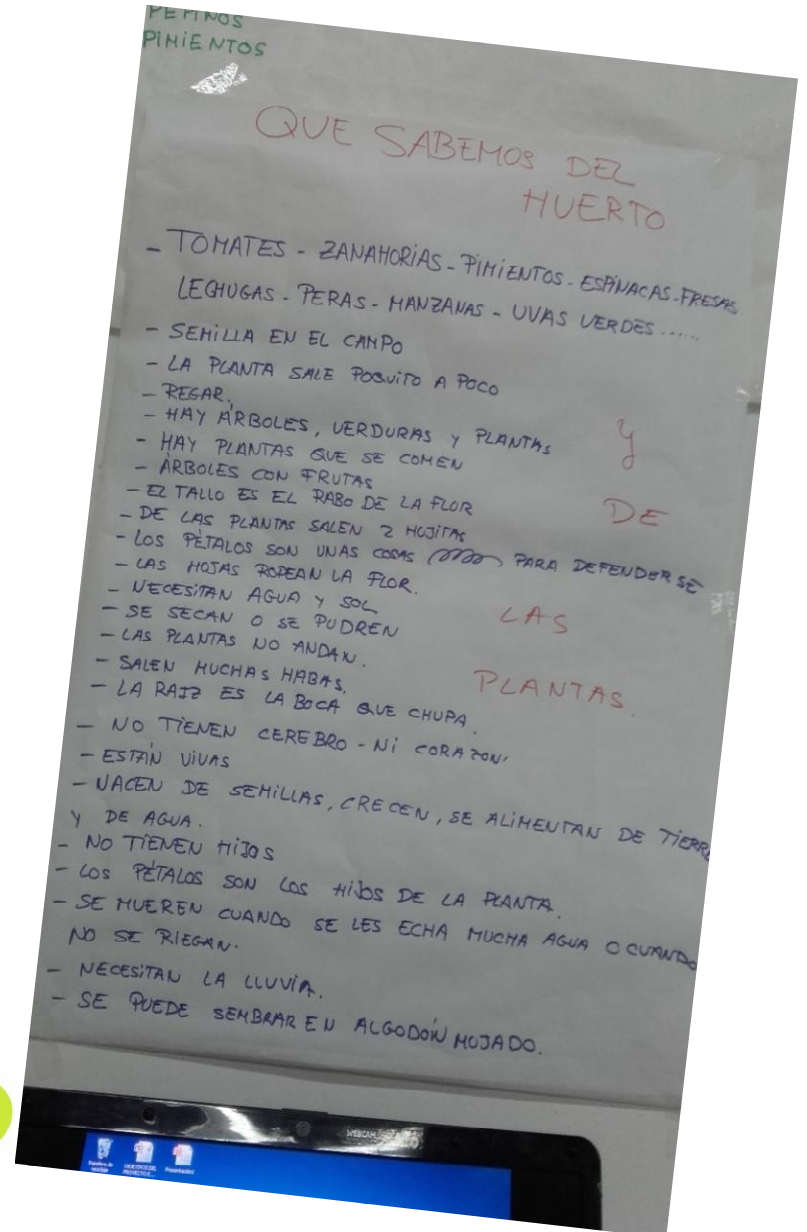 PEPINOS
PIMIENTOS
QUE SABEMOS DEL
HUERTO
- TOMATES - ZANAHORIAS - PIMIENTOS - ESPINACAS - FRESAS
LECHUGAS - PERAS - MANZANAS - UVAS VERDES......
- SEMILLA EN EL CAMPO
- LA PLANTA SALE POQUITO A POCO
- REGAR.
- HAY ÁRBOLES, VERDURAS Y PLANTAS
- HAY PLANTAS QUE SE COMEN
- ÁRBOLES CON FRUTAS
- EL TALLO ES EL RABO DE LA FLOR
- DE LAS PLANTAS SALEN 2 HOJITAS
- LOS PÉTALOS SON UNAS COSAS PARA DEFENDERSE
- LAS HOJAS RODEAN LA FLOR.
- NECESITAN AGUA Y SOL
- SE SECAN O SE PUDREN
- LAS PLANTAS NO ANDAN.
- SALEN MUCHAS HABAS.
- LA RAIZ ES LA BOCA QUE CHUPA.
- NO TIENEN CEREBRO - NI CORAZON
- ESTÁN VIVAS
- NACEN DE SEMILLAS, CRECEN, SE ALIMENTAN DE TIERRA
Y DE AGUA.
- NO TIENEN HIJOS
- LOS PÉTALOS SON LOS HIJOS DE LA PLANTA.
- SE MUEREN CUANDO SE LES ECHA MUCHA AGUA O CUANDO
NO SE RIEGAN.
- NECESITAN LA LLUVIA.
- SE PUEDE SEMBRAR EN ALGODÓN MOJADO.
Y
DE
LAS
PLANTAS.
WEBCAM
Papelera de
reciclaje
OBJETIVOS DEL
PROYECTO E...
Presentación1